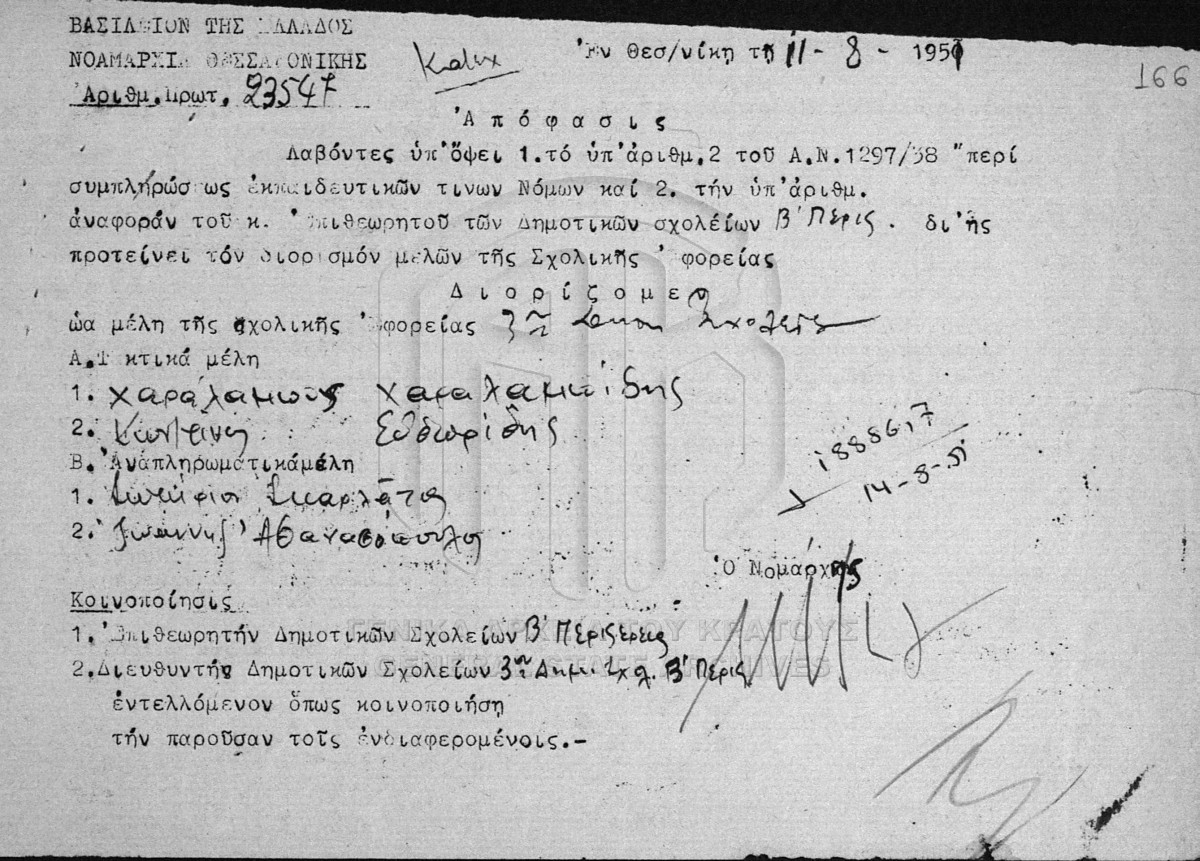 ΒΑΣΙΛΕΙΟΝ ΤΗΣ ΕΛΛΑΔΟΣ
ΝΟΑΜΑΡΧΙΑ ΘΕΣΣΑΛΟΝΙΚΗΣ
Ἀριθμ.Πρωτ. 23547
Ἐν Θεσ/νίκῃ τῇ 11-8-1951
166
Ἀπόφασις
Λαβόντες ὑπ'ὄψει 1.τό ὑπ'ἀριθμ.2 τοῦ Α.Ν.1297/38 "περί
συμπληρώσεως ἐκπαιδευτικῶν τινων Νόμων καί 2. τήν ὑπ'ἀριθμ.
ἀναφοράν τοῦ κ. Ἐπιθεωρητοῦ τῶν Δημοτικῶν σχολείων Β' Περις. δι'ἧς
προτείνει τόν διορισμόν μελῶν τῆς Σχολικῆς Ἐφορείας
Διορίζομεν
ὡα μέλη τῆς σχολικῆς Ἐφορείας 3ου Δημ. Σχολείου
Α.Τακτικά μέλη
1. Χαράλαμπος Χαραλαμπίδης
2. Κων/τῖνος Εὐδωρίδης
Β.Ἀναπληρωματικάμέλη
1. Σωτήριος Σκαρλάτος
2. Ἰωάννης Ἀθανασόπουλος
18886,7
14-8-51
Ὁ Νομάρχης
Κοινοποίησις
1.Ἐπιθεωρητήν Δημοτικῶν Σχολείων Β' Περιφερείας
2.Διευθυντήν Δημοτικῶν Σχολείων 3ου Δημ. Σχολ. Β' Περις.
ἐντελλόμενον ὅπως κοινοποιήσῃ
τήν παροῦσαν τοῖς ἐνδιαφερομένοις.-
ΓΕΝΙΚΑ ΑΡΧΕΙΑ ΤΟΥ ΚΡΑΤΟΥΣ
GENERAL STATE ARCHIVES